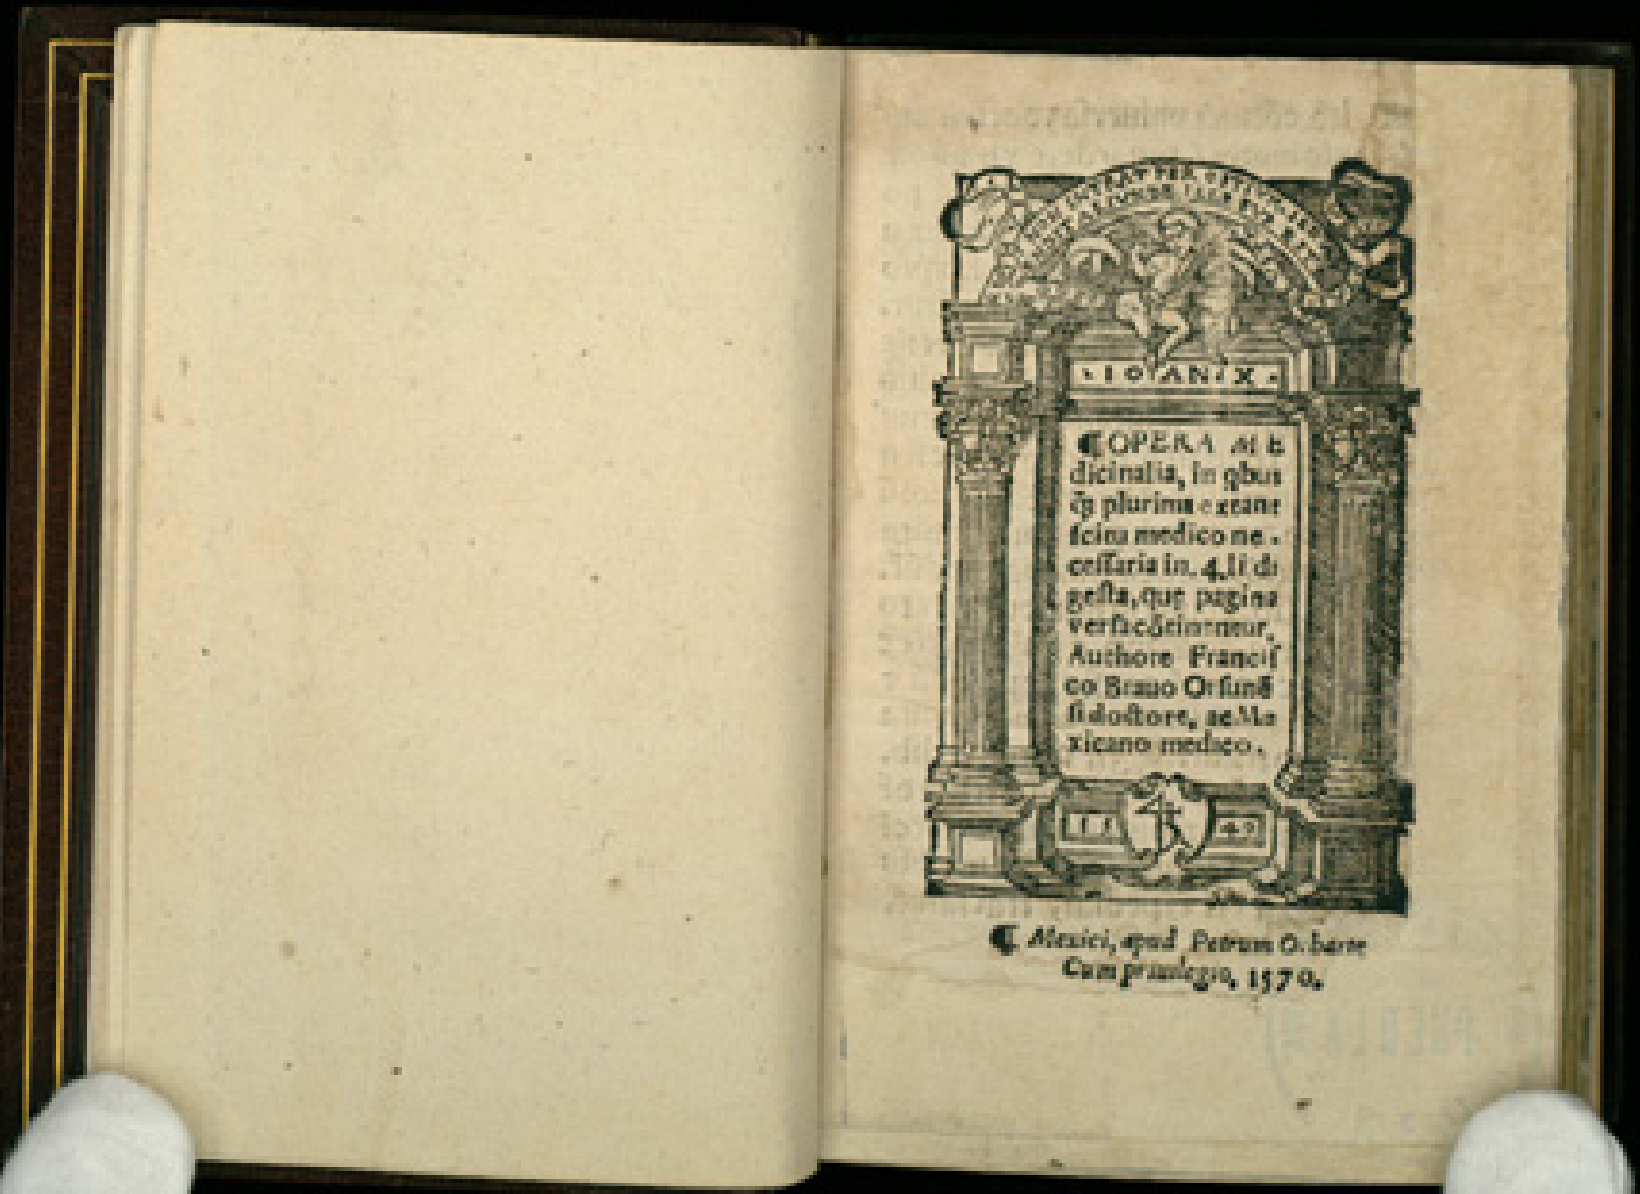 · IOANIX ·
¶ OPERA ME
dicinalia, in qbus
q̄ plurima extant
ſcitu medico ne-
ceſſaria in. 4. li di
geſta, que pagina
verſa cōtinentur,
Authore Franciſ
co Brauo Orſunē
ſi doctore, ac Me
xicano medico.
15 47
¶ Mexici, apud Petrum Ocharte
Cum priuilegio. 1570.